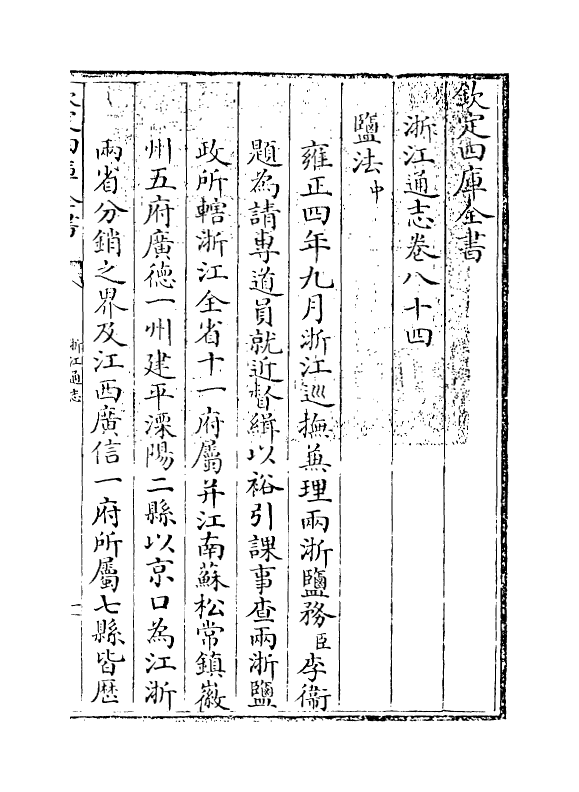 欽定四庫全書
浙江通志卷八十四
鹽法中
雍正四年九月浙江巡撫兼理兩浙鹽務臣李衞
題為請專道員就近督緝以裕引課事查兩浙鹽
政所轄浙江全省十一府屬并江南蘇松常鎮徽
州五府廣德一州建平溧陽二縣以京口為江浙
兩省分銷之界及江西廣信一府所屬七縣皆歴
欽定四庫全書
浙江通志
一